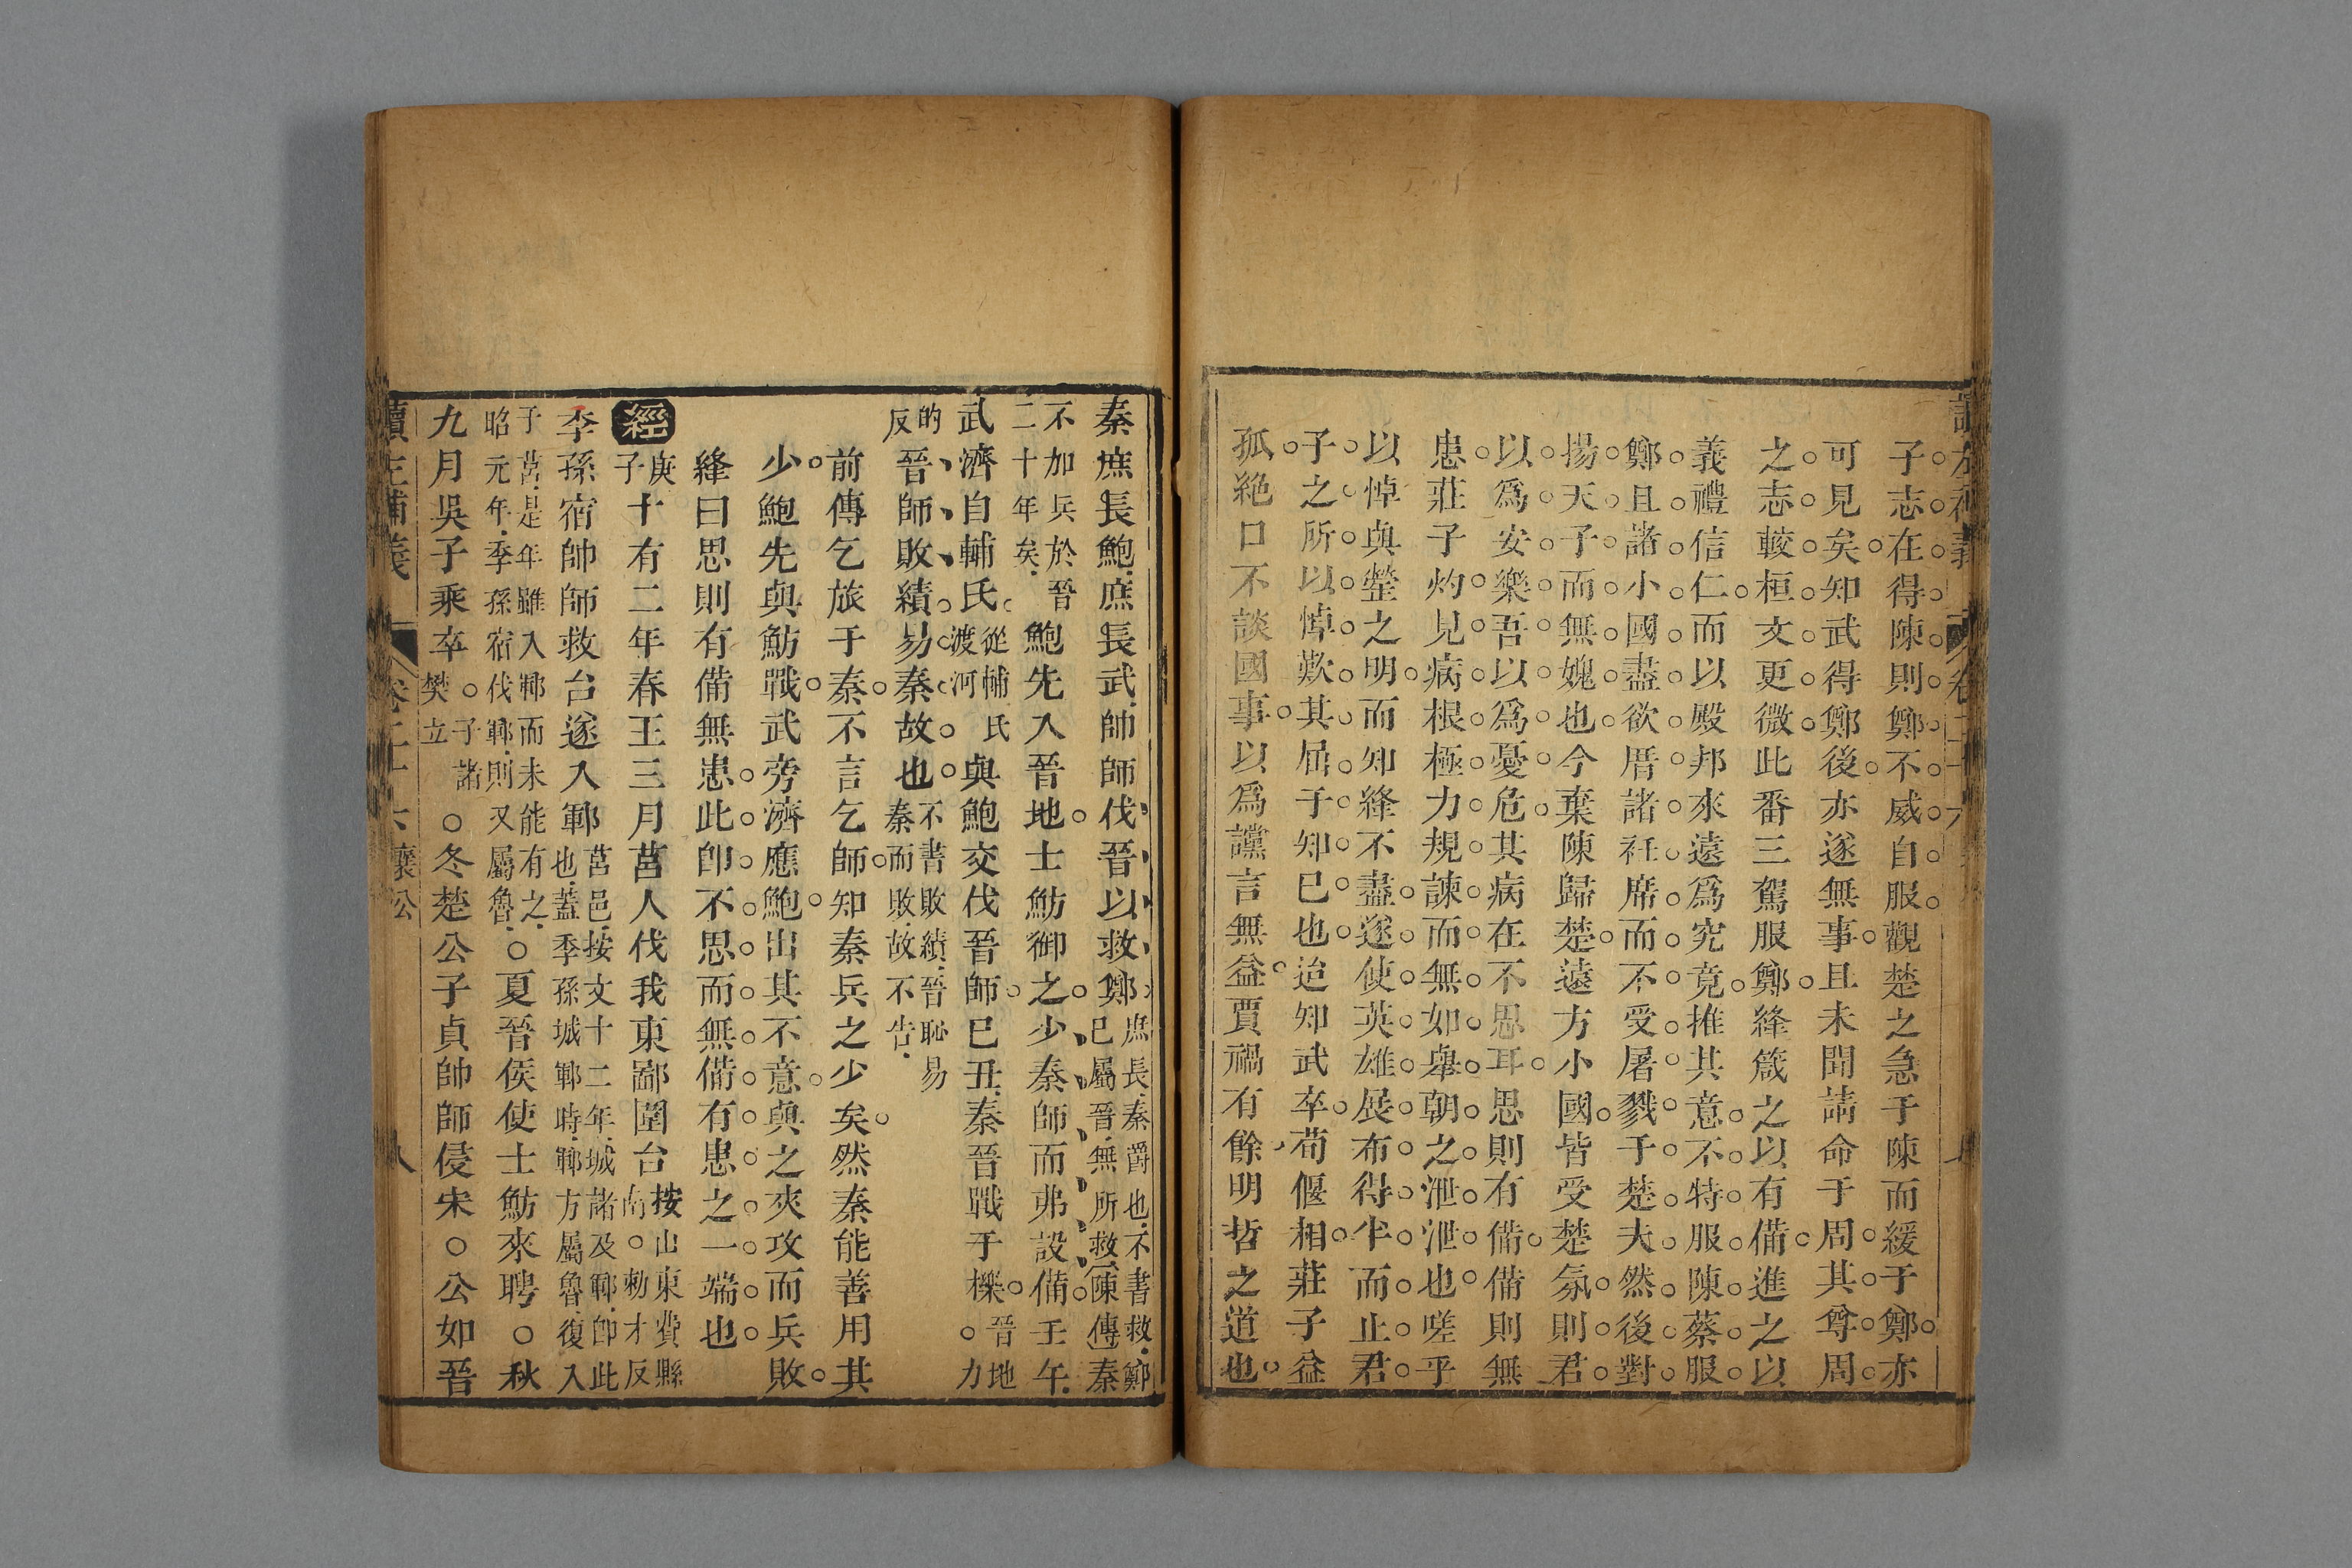 子志在得陳則鄭不威自服觀楚之急于陳而緩于鄭亦
可見矣知武得鄭後亦遂無事且未聞請命于周其尊周
之志較桓文更微此番三駕服鄭絳箴之以有備進之以
義禮信仁而以殿邦來遠爲究竟推其意不特服陳蔡服
鄭且諸小國盡欲厝諸衽席而不受屠戮于楚夫然後對
揚天子而無媿也今棄陳歸楚遠方小國皆受楚氛則君
以爲安樂吾以爲憂危其病在不思耳思則有備備則無
患莊子灼見病根極力規諫而無如舉朝之泄泄也嗟乎
以悼與整之明而知絳不盡遂使英雄展布得半而止君
子之所以悼歎其屈于知已也迨知武卒荀偃相莊子益
孤絶口不談國事以爲讜言無益賈禍有餘明哲之道也
秦庶長鮑庶長武帥師伐晉以救鄭庶長秦爵也不書救鄭已屬晉無所救陳傳秦
不加兵於晉二十年矣鮑先入晉地士魴御之少秦師而弗設備壬午
武濟自輔氏從輔氏渡河與鮑交伐晉師已丑秦晉戰于櫟晉地力
的反晉師敗績易秦故也不書敗績晉恥易秦而敗故不告
前傳乞旅于秦不言乞師知秦兵之少矣然秦能善用其
少鮑先與魴戰武旁濟應鮑出其不意與之夾攻而兵敗
絳曰思則有備無患此卽不思而無備有患之一端也
經庚子十有二年春王三月莒人伐我東鄙圍台按山東費縣南勑才反
季孫宿帥師救台遂入鄆莒邑按文十二年城諸及鄆卽此也蓋季孫城鄆時鄆方屬魯復入
于莒是年雖入鄆而未能有之昭元年季孫宿伐鄆則又屬魯夏晉侯使士魴來聘秋
九月吳子乘卒子諸樊立冬楚公子貞帥師侵宋公如晉
讀左補義 卷二十六 襄公 八